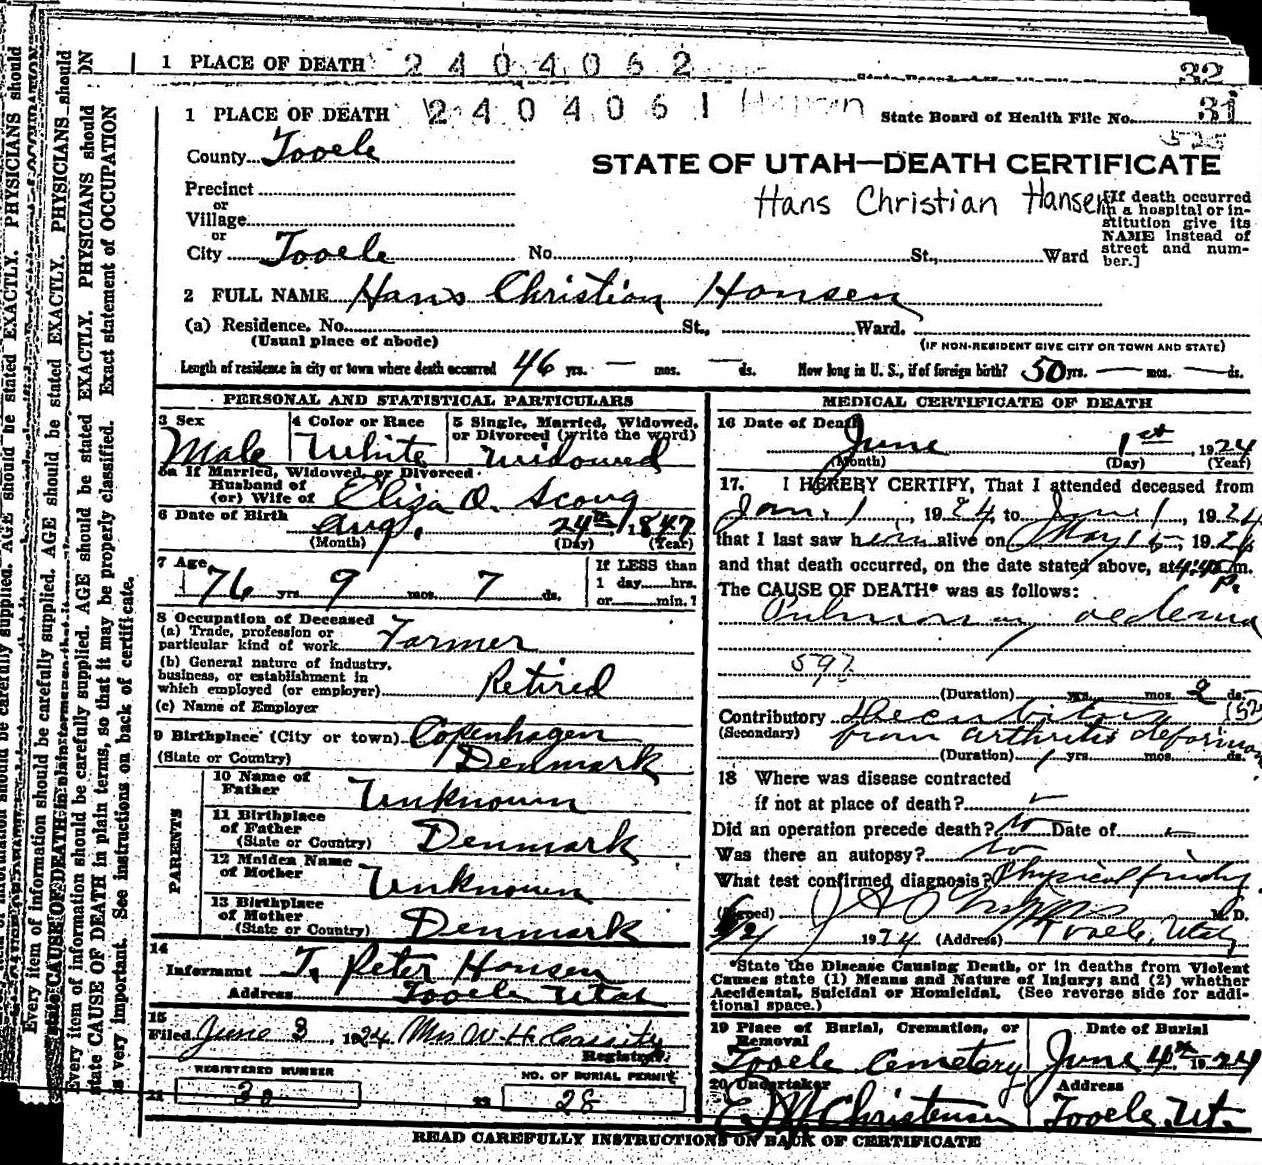 1 PLACE OF DEATH 2404062 32
1 PLACE OF DEATH 2404061 Hansen State Board of Health File No. 31
525
County Tooele
STATE OF UTAH—DEATH CERTIFICATE
Precinct
or
Village
or
City Tooele No. St., Ward
Hans Christian Hansen
[If death occurred
in a hospital or in-
stitution give its
NAME instead of
street and num-
ber.]
2 FULL NAME Hans Christian Hansen
(a) Residence. No. St., Ward.
(Usual place of abode) (IF NON-RESIDENT GIVE CITY OR TOWN AND STATE)
Length of residence in city or town where death occurred 46 yrs. — mos. — ds. How long in U. S., if of foreign birth? 50 yrs. — mos. — ds.
PERSONAL AND STATISTICAL PARTICULARS
3 Sex
Male
4 Color or Race
White
5 Single, Married, Widowed,
or Divorced (write the word)
Widowed
5a If Married, Widowed, or Divorced
Husband of
(or) Wife of Eliza O.
6 Date of Birth Aug. 24th, 1847
(Month) (Day) (Year)
7 Age 76 yrs. 9 mos. 7 ds.
If LESS than
1 day hrs.
or min.?
8 Occupation of Deceased
(a) Trade, profession or
particular kind of work Farmer
(b) General nature of industry,
business, or establishment in
which employed (or employer) Retired
(c) Name of Employer
9 Birthplace (City or town) Copenhagen
(State or Country) Denmark
PARENTS
10 Name of
Father Unknown
11 Birthplace
of Father
(State or Country) Denmark
12 Maiden Name
of Mother Unknown
13 Birthplace
of Mother
(State or Country) Denmark
14
Informant T. Peter Hansen
Address Tooele Utah
15
Filed June 3, 1924 Mrs W. H. Cassity
Registrar.
REGISTERED NUMBER NO. OF BURIAL PERMIT
21 30 22 28
MEDICAL CERTIFICATE OF DEATH
16 Date of Death
June 1st, 1924
(Month) (Day) (Year)
17. I HEREBY CERTIFY, That I attended deceased from
Jan. 1, 1924, to June 1, 1924
that I last saw him alive on May 15, 1924
and that death occurred, on the date stated above, at 4:45 P. m.
The CAUSE OF DEATH* was as follows:
Pulmonary oedema
597
(Duration) yrs. mos. 2 ds.
Contributory Decubitus
(Secondary) from arthritis deformans
(Duration) 1 yrs. mos. ds.
18 Where was disease contracted
if not at place of death?
Did an operation precede death? No Date of
Was there an autopsy? No
What test confirmed diagnosis? Physical
(Signed) M. D.
1924 (Address) Tooele, Utah
*State the Disease Causing Death, or in deaths from Violent
Causes state (1) Means and Nature of Injury; and (2) whether
Accidental, Suicidal or Homicidal. (See reverse side for addi-
tional space.)
19 Place of Burial, Cremation, or
Removal
Tooele Cemetary
Date of Burial
June 4th 1924
20 Undertaker
E M Christensen
Address
Tooele, Ut.
READ CAREFULLY INSTRUCTIONS ON BACK OF CERTIFICATE
Every item of information should be carefully supplied. AGE should be stated EXACTLY. PHYSICIANS should
state CAUSE OF DEATH in plain terms, so that it may be properly classified. Exact statement of OCCUPATION
is very important. See instructions on back of certificate.